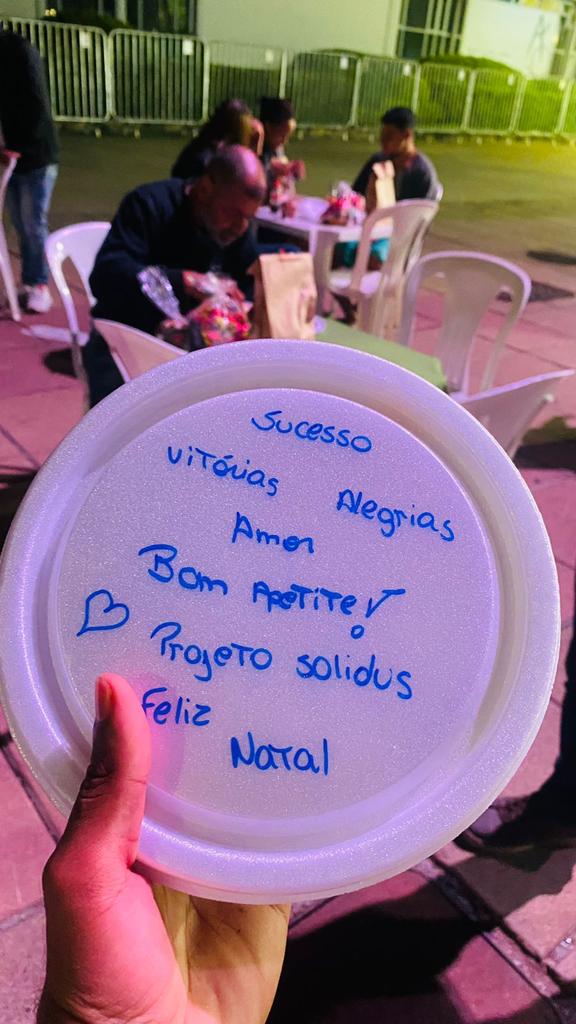 Sucesso
Vitórias Alegrias
Amor
Bom Apetite!
Projeto solidus
Feliz
Natal